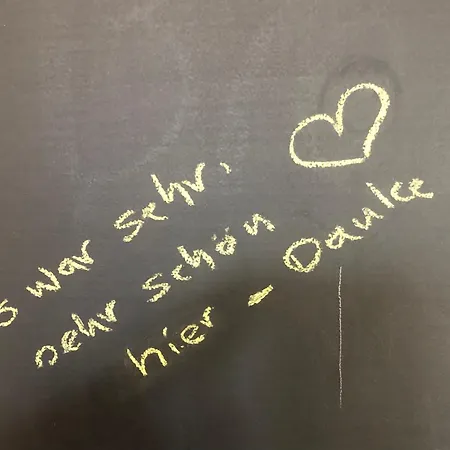 s war sehr,
sehr schön
hier - Danke